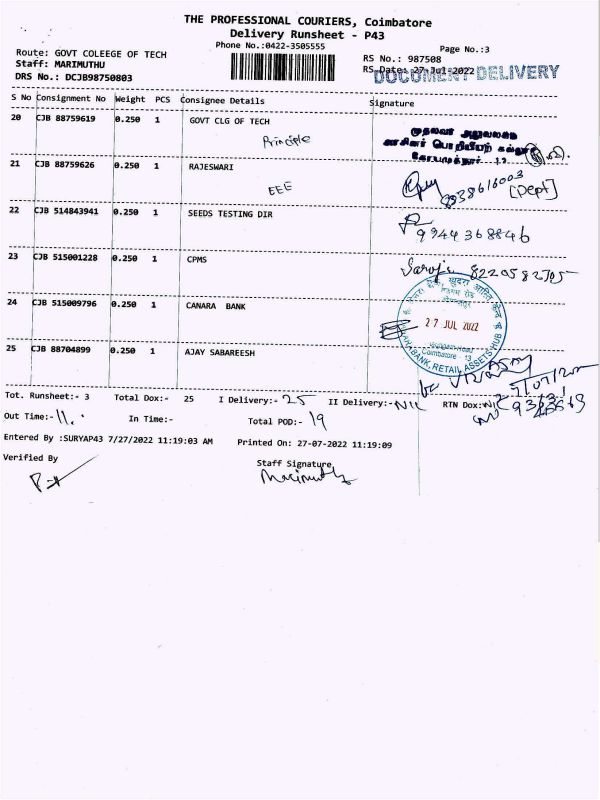 THE PROFESSIONAL COURIERS, Coimbatore
Delivery Runsheet - P43
Phone No.:0422-3505555
Page No.:3
Route: GOVT COLEEGE OF TECH
Staff: MARIMUTHU
DRS No.: DCJB98750803
RS No.: 987508
RS Date: 27-Jul-2022
DOCUMENT DELIVERY
S No Consignment No Weight PCS Consignee Details Signature
20 CJB 88759619 0.250 1 GOVT CLG OF TECH
Principle
முதல்வர் அலுவலகம்
அரசினர் பொறியியற் கல்லூரி
கோயமுத்தூர் - 13
21 CJB 88759626 0.250 1 RAJESWARI
EEE
[Dept]
22 CJB 514843941 0.250 1 SEEDS TESTING DIR
9944368846
23 CJB 515001228 0.250 1 CPMS
Saroja 8220582705
24 CJB 515009796 0.250 1 CANARA BANK
27 JUL 2022
Coimbatore - 13
BANK, RETAIL ASSETS HUB
25 CJB 88704899 0.250 1 AJAY SABAREESH
Tot. Runsheet:- 3 Total Dox:- 25 I Delivery:- 25 II Delivery:- NIL RTN Dox:- NIL
Out Time:- 11. In Time:- Total POD:- 19
Entered By :SURYAP43 7/27/2022 11:19:03 AM Printed On: 27-07-2022 11:19:09
Verified By
Staff Signature
Marimuthu